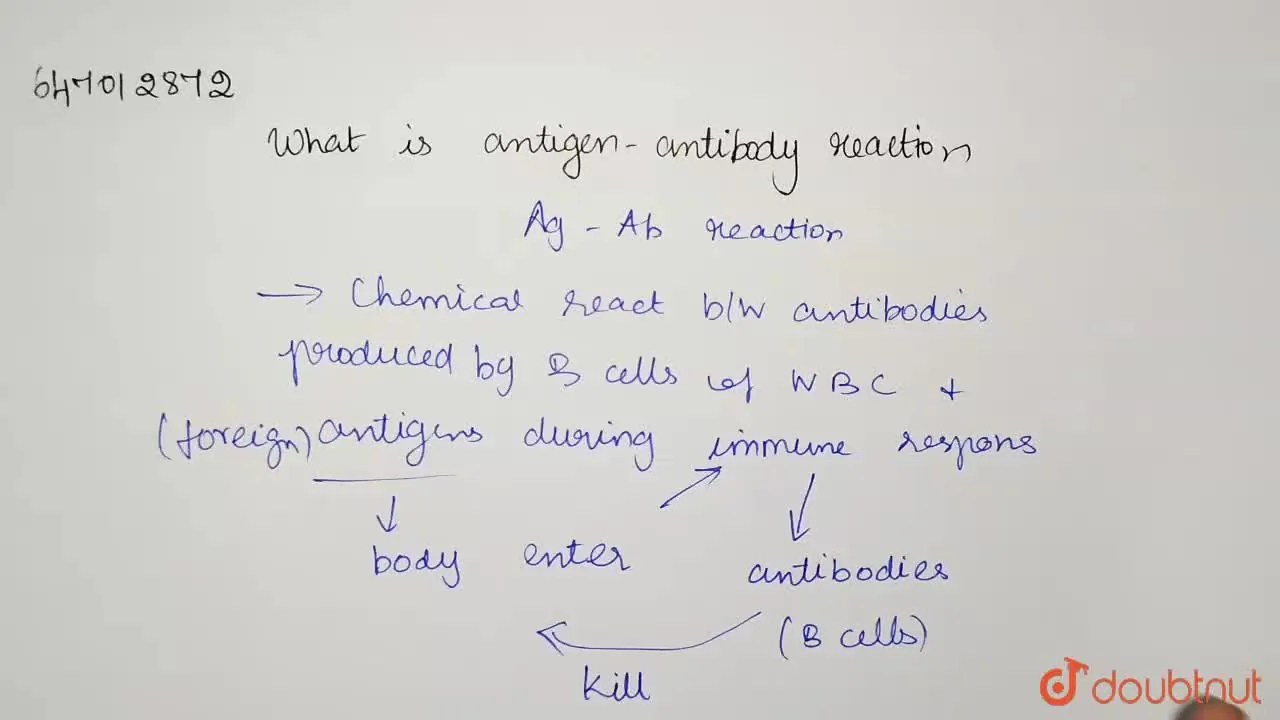 647012872
What is antigen-antibody reaction
Ag - Ab reaction
→ Chemical react b/w antibodies
produced by B cells of WBC +
(foreign) antigens during immune respons
body enter
antibodies
(B cells)
kill
doubtnut